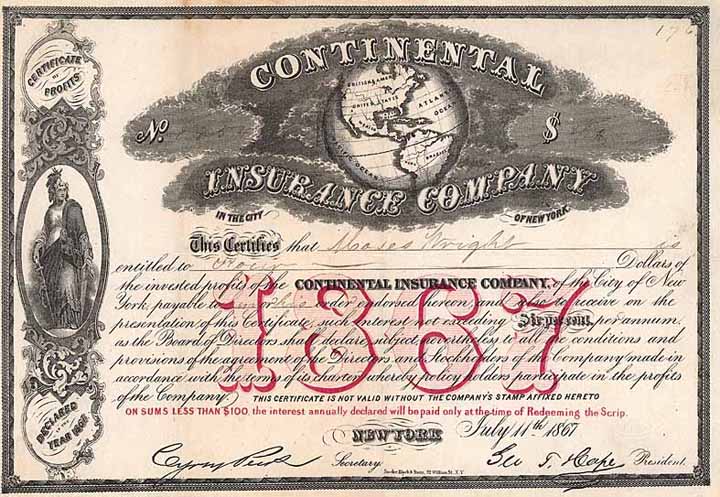 176
CERTIFICATE
OF
PROFITS
CONTINENTAL
BRITISH AMERICA
UNITED STATES
ATLANTIC
OCEAN
PACIFIC OCEAN
BRAZIL
No.
$
INSURANCE COMPANY
IN THE CITY OF NEW YORK
This Certifies that Moses Wright is
entitled to Dollars of
the invested profits of the CONTINENTAL INSURANCE COMPANY, of the City of New
York, payable to his order endorsed hereon, and also to receive on the
presentation of this Certificate, such interest not exceeding Six per cent, per annum,
as the Board of Directors shall declare, subject, nevertheless to all the conditions and
provisions of the agreement of the Directors and Stockholders of the Company made in
accordance with the terms of its charter, whereby policy holders participate in the profits
of the Company.
1867
THIS CERTIFICATE IS NOT VALID WITHOUT THE COMPANY'S STAMP AFFIXED HERETO
ON SUMS LESS THAN $100, the interest annually declared will be paid only at the time of Redeeming the Scrip.
DECLARED
IN THE
YEAR 1867
NEW YORK July 11th 1867
Cyrus Peck Secretary. Geo T. Hope President.